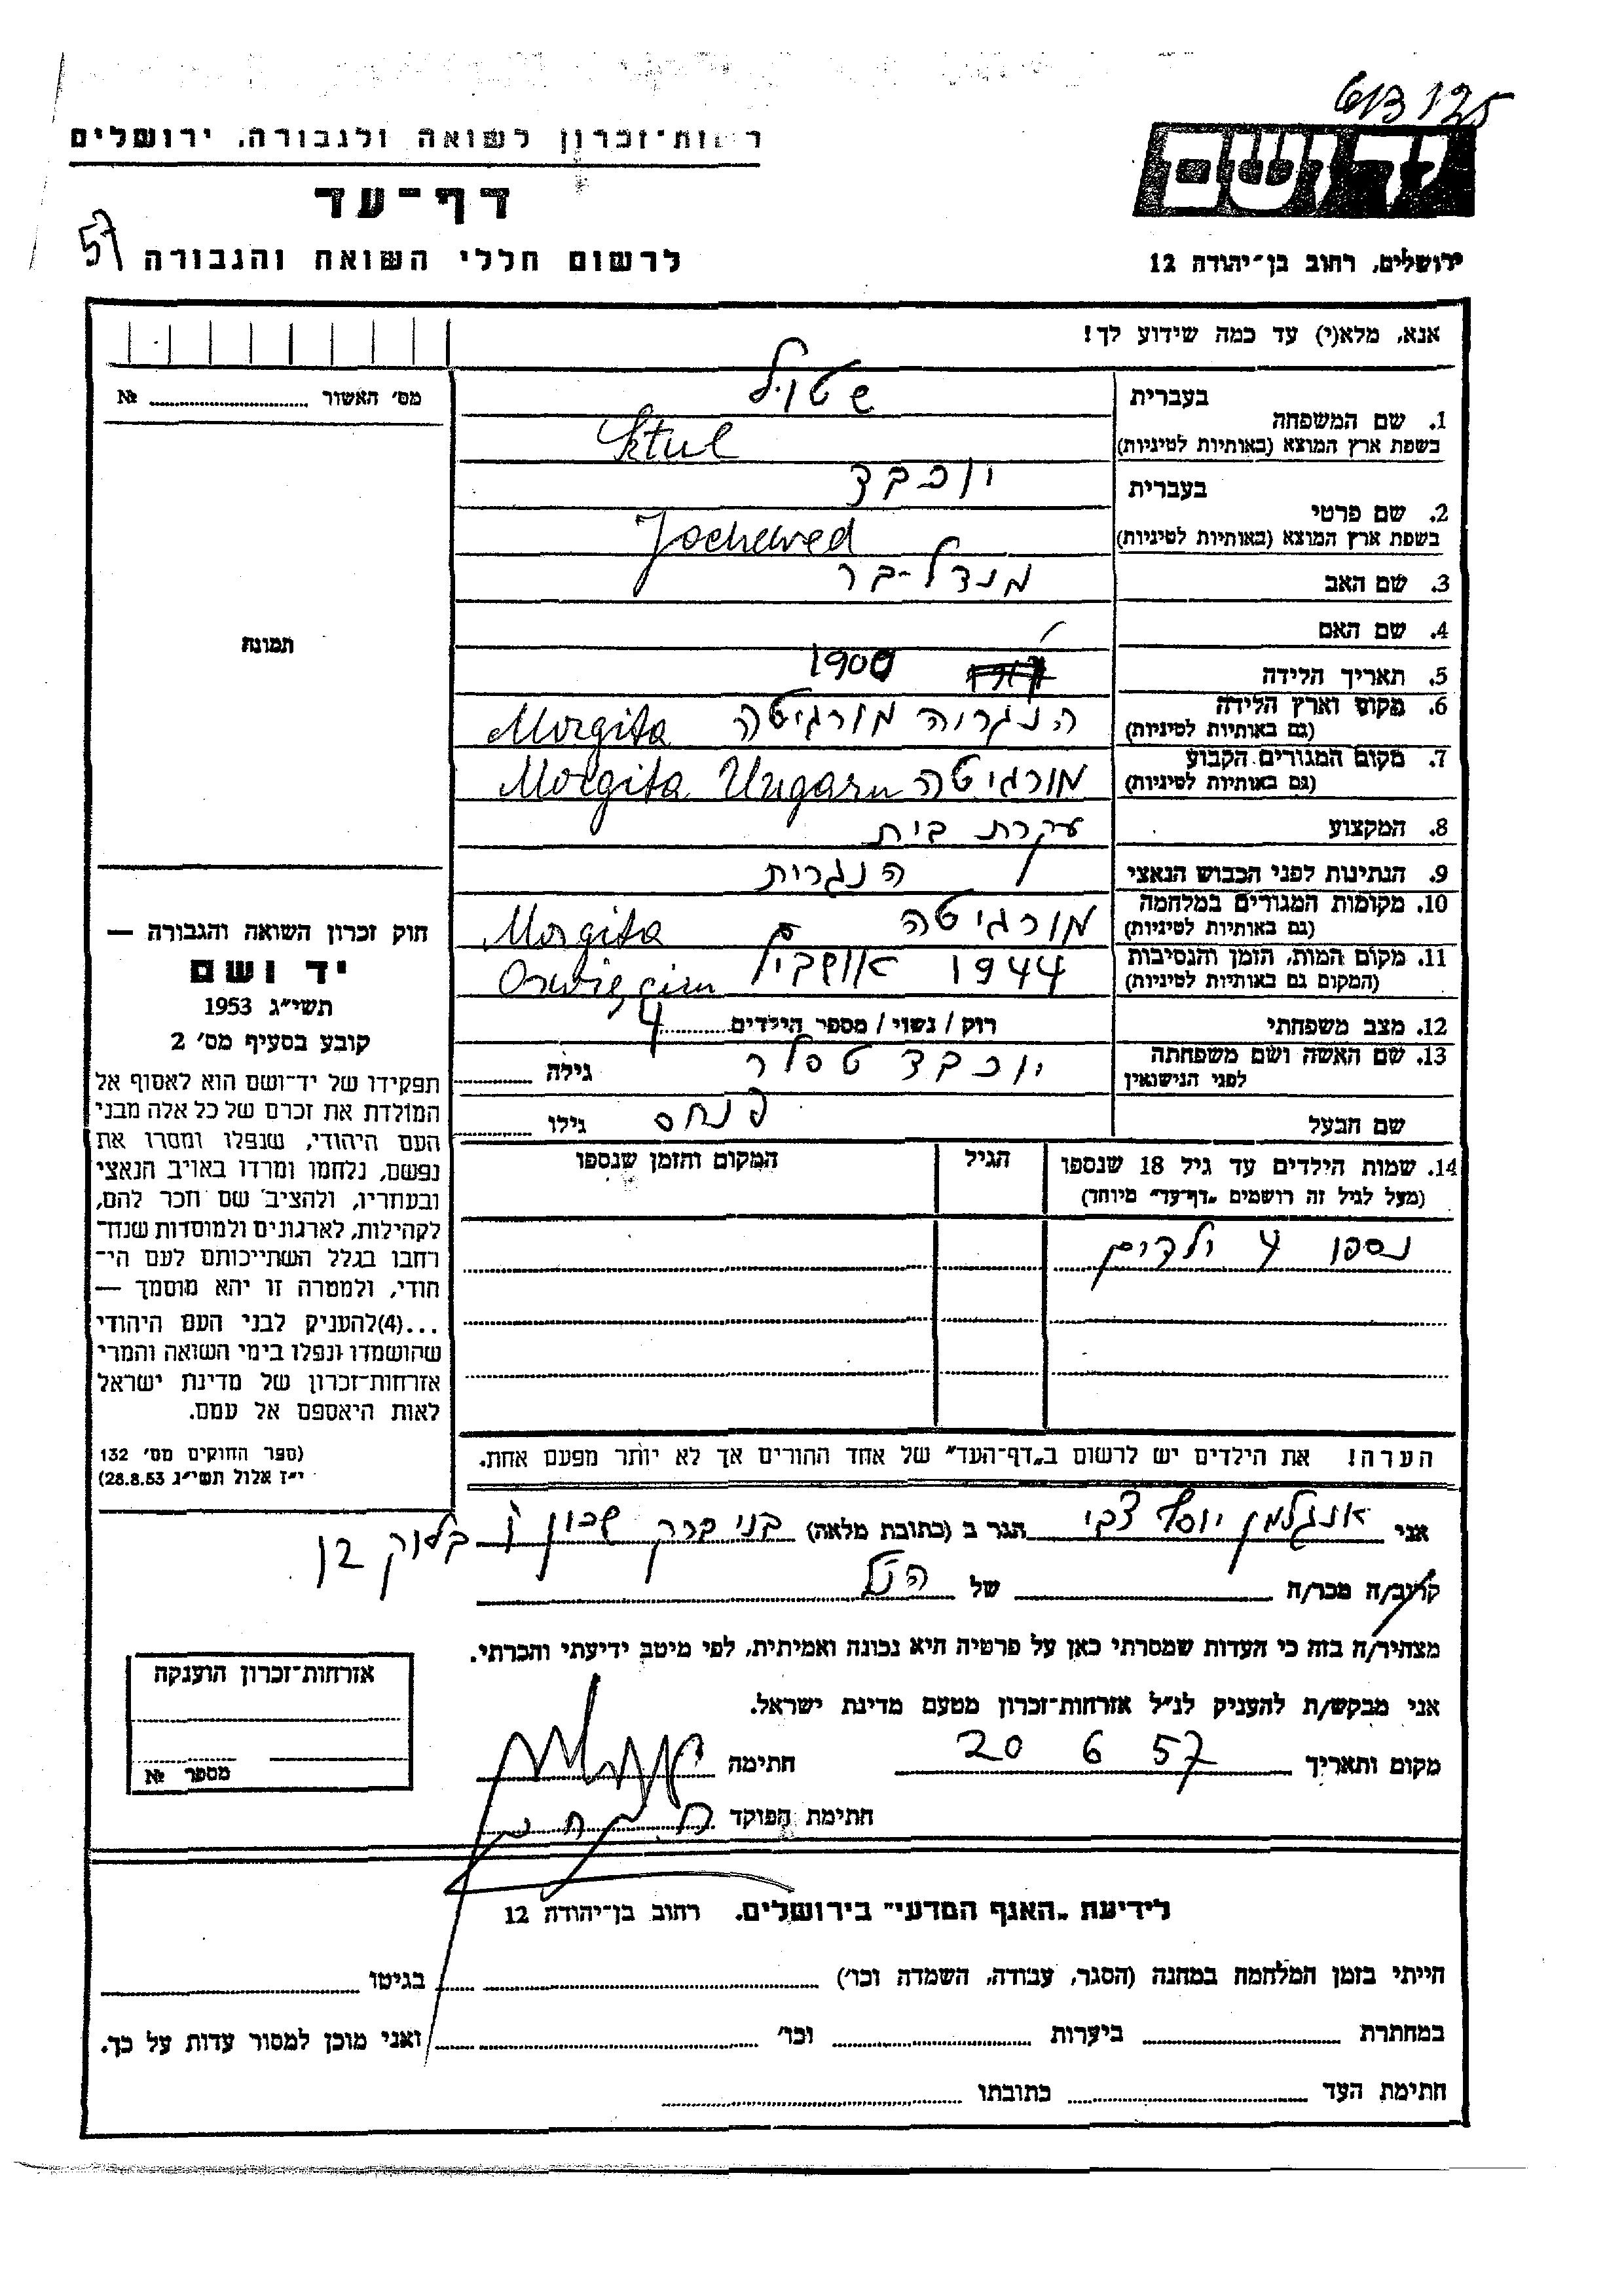 רשות־זכרון לשואה ולגבורה, ירושלים
דף־עד
57
לרשום חללי השואה והגבורה
יד ושם
ירושלים, רחוב בן־יהודה 12
אנא, מלא(י) עד כמה שידוע לך!
מס׳ האשור № 
תמונה
1. שם המשפחה בעברית שטויל
בשפת ארץ המוצא (באותיות לטיניות) Sktul
2. שם פרטי בעברית יוכבד
בשפת ארץ המוצא (באותיות לטיניות) Jochewed
3. שם האב מנדל-בר
4. שם האם
5. תאריך הלידה 1900
6. מקום וארץ הלידה הנגרוה מורגיטה Morgita
(גם באותיות לטיניות)
7. מקום המגורים הקבוע מורגיטה Morgita Ungarn
(גם באותיות לטיניות)
8. המקצוע עקרת בית
9. הנתינות לפני הכבוש הנאצי הנגרית
10. מקומות המגורים במלחמה מורגיטה Morgita
(גם באותיות לטיניות)
11. מקום המות, הזמן והנסיבות 1944
(המקום גם באותיות לטיניות)
12. מצב משפחתי רוק / נשוי / מספר הילדים 4
13. שם האשה ושם משפחתה לפני הנישואין יוכבד טפלר גילה
שם הבעל פנחס גילו
14. שמות הילדים עד גיל 18 שנספו
(מעל לגיל זה רושמים „דף־עד” מיוחד)
הגיל
המקום והזמן שנספו
נספו 4 ילדים
הערה! את הילדים יש לרשום ב„דף־העד” של אחד ההורים אך לא יותר מפעם אחת.
חוק זכרון השואה והגבורה —
יד ושם
תשי״ג 1953
קובע בסעיף מס׳ 2
תפקידו של יד־ושם הוא לאסוף אל
המולדת את זכרם של כל אלה מבני
העם היהודי, שנפלו ומסרו את
נפשם, נלחמו ומרדו באויב הנאצי
ובעוזריו, ולהציב שם וזכר להם,
לקהילות, לארגונים ולמוסדות שנח־
רבו בגלל השתייכותם לעם הי־
הודי, ולמטרה זו יהא מוסמך —
...(4)להעניק לבני העם היהודי
שהושמדו ונפלו בימי השואה והמרי
אזרחות־זכרון של מדינת ישראל
לאות היאספם אל עמם.
(ספר החוקים מס׳ 132
י״ז אלול תשי״ג 28.8.53)
אני אנגלמן יוסף צבי הגר ב (כתובת מלאה) בני ברק שכון ו בלוק
קרוב/ה מכר/ה של הנ״ל
מצהיר/ה בזה כי העדות שמסרתי כאן על פרטיה היא נכונה ואמיתית, לפי מיטב ידיעתי והכרתי.
אני מבקש/ת להעניק לנ״ל אזרחות־זכרון מטעם מדינת ישראל.
מקום ותאריך 20 6 57 חתימה
חתימת הפוקד
אזרחות־זכרון הוענקה
מספר №
לידיעת „האגף המדעי” בירושלים. רחוב בן־יהודה 12
הייתי בזמן המלחמה במחנה (הסגר, עבודה, השמדה וכו׳) בגיטו
במחתרת ביערות וכו׳ ואני מוכן למסור עדות על כך.
חתימת העד כתובתו